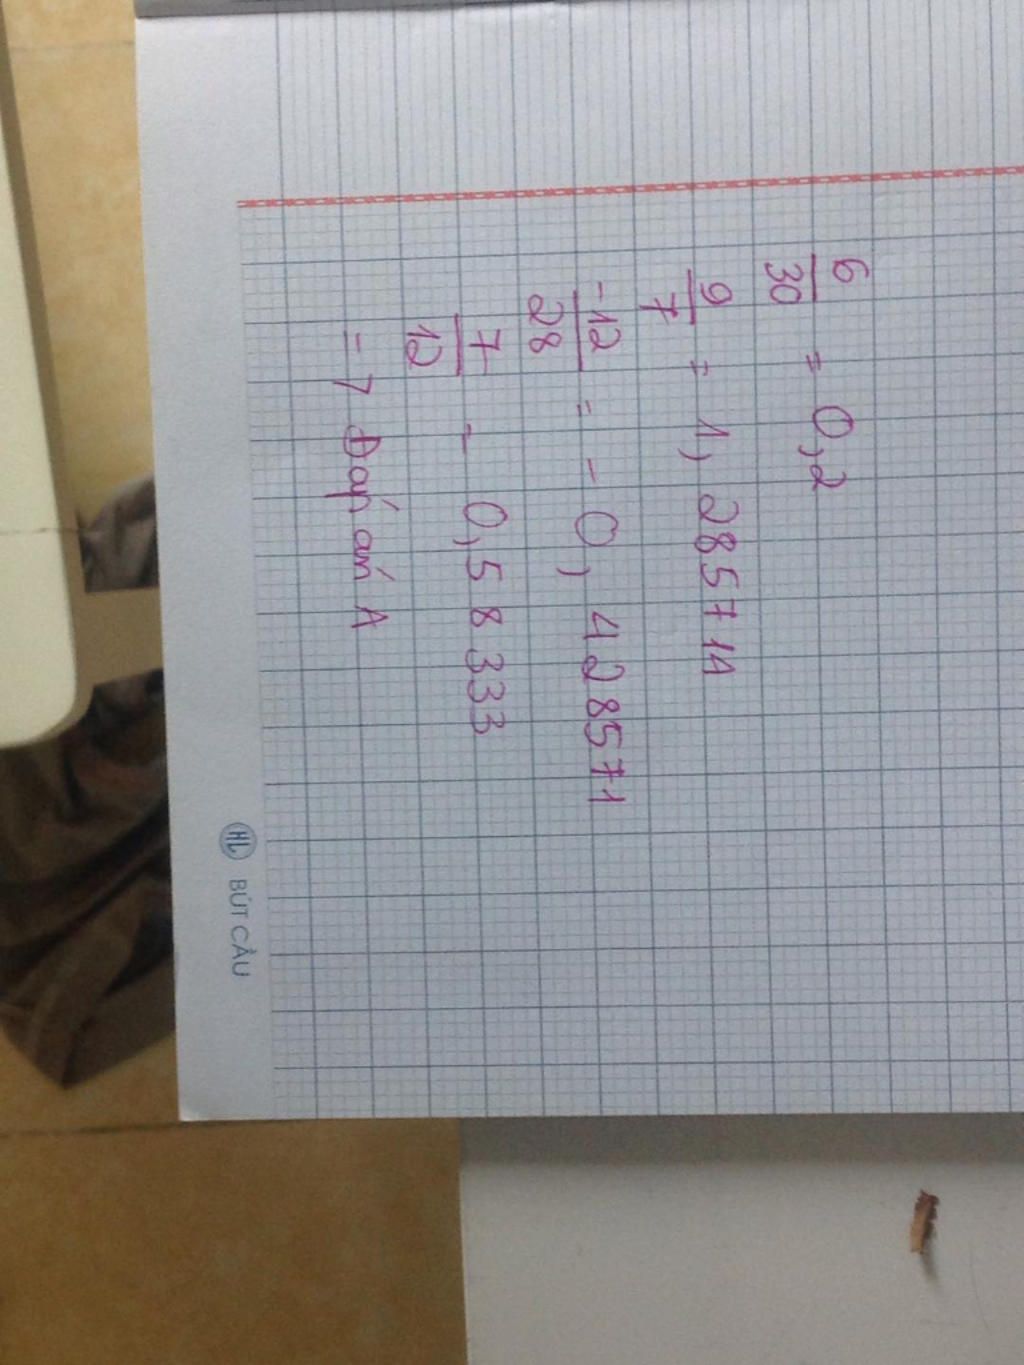 6/30 = 0,2
9/7 = 1,285714
-12/28 = -0,428571
7/12 = 0,58333
=7 Đáp án A
HL BÚT CẦU